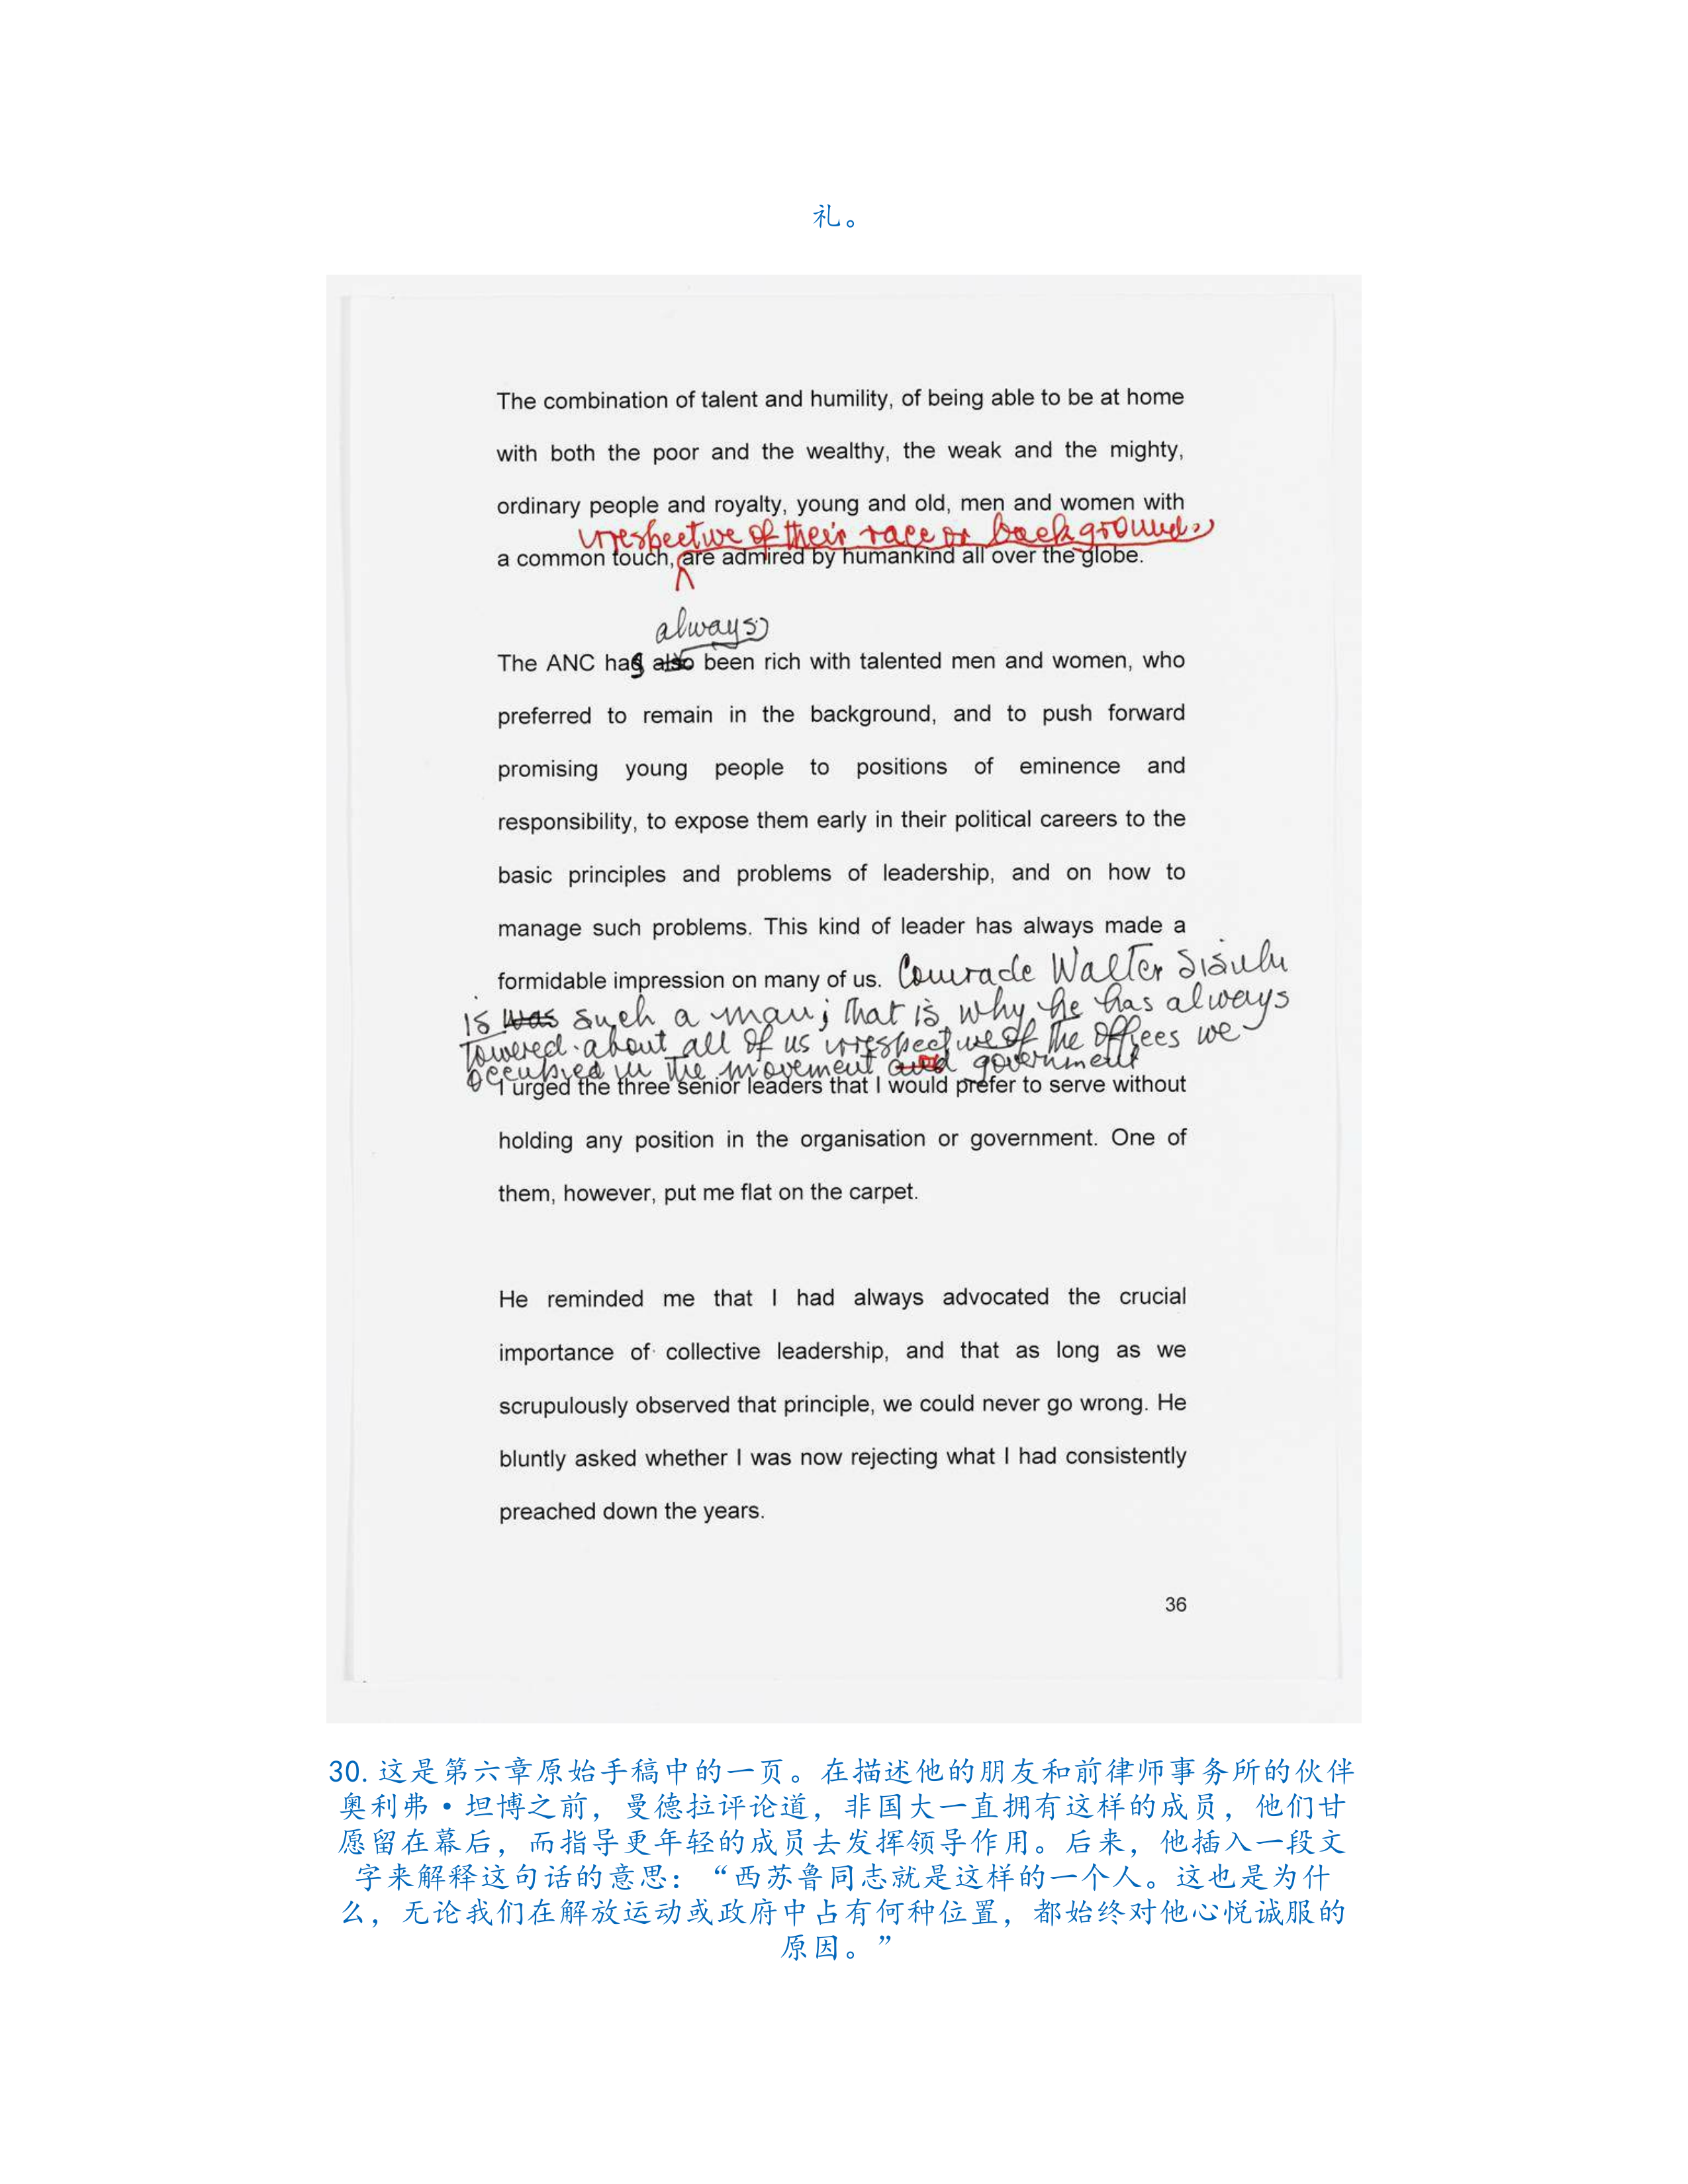 礼。
The combination of talent and humility, of being able to be at home
with both the poor and the wealthy, the weak and the mighty,
ordinary people and royalty, young and old, men and women with
irrespective of their race or background,
a common touch, are admired by humankind all over the globe.
always
The ANC has also been rich with talented men and women, who
preferred to remain in the background, and to push forward
promising young people to positions of eminence and
responsibility, to expose them early in their political careers to the
basic principles and problems of leadership, and on how to
manage such problems. This kind of leader has always made a
formidable impression on many of us. Comrade Walter Sisulu
is was such a man; that is why he has always
towered about all of us irrespective of the offices we
occupied in the movement and government
I urged the three senior leaders that I would prefer to serve without
holding any position in the organisation or government. One of
them, however, put me flat on the carpet.
He reminded me that I had always advocated the crucial
importance of collective leadership, and that as long as we
scrupulously observed that principle, we could never go wrong. He
bluntly asked whether I was now rejecting what I had consistently
preached down the years.
36
30. 这是第六章原始手稿中的一页。在描述他的朋友和前律师事务所的伙伴
奥利弗·坦博之前，曼德拉评论道，非国大一直拥有这样的成员，他们甘
愿留在幕后，而指导更年轻的成员去发挥领导作用。后来，他插入一段文
字来解释这句话的意思：“西苏鲁同志就是这样的一个人。这也是为什
么，无论我们在解放运动或政府中占有何种位置，都始终对他心悦诚服的
原因。”